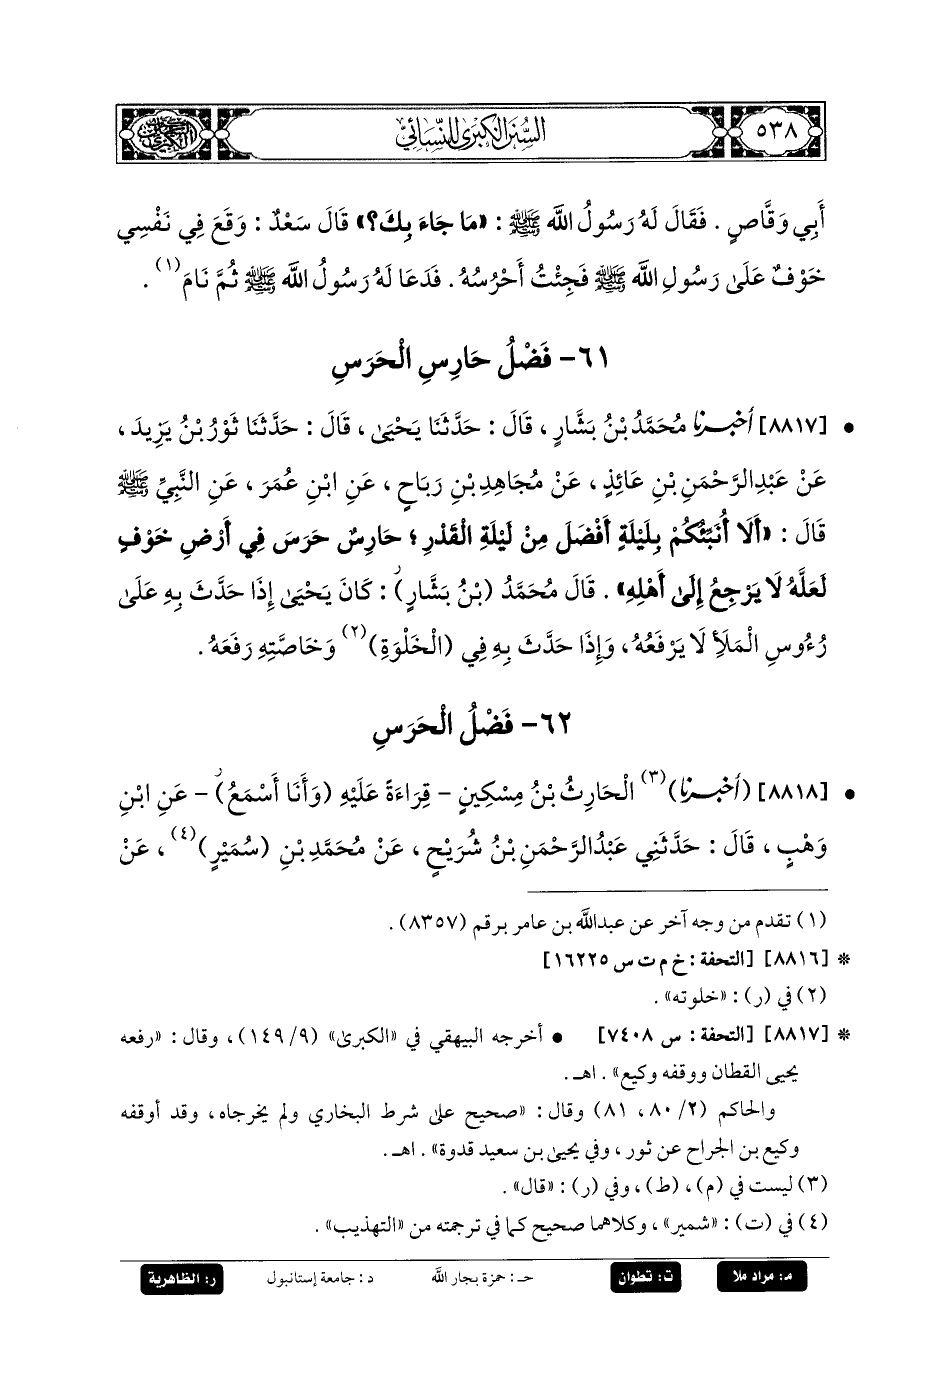 ٥٣٨
السنن الكبرى للنسائي
أَبِي وَقَّاصٍ . فَقَالَ لَهُ رَسُولُ اللَّه ﷺ : «مَا جَاءَ بِكَ؟» قَالَ سَعْدٌ : وَقَعَ فِي نَفْسِي
خَوْفٌ عَلَىٰ رَسُولِ اللَّه ﷺ فَجِئْتُ أَحْرُسُهُ. فَدَعَا لَهُ رَسُولُ اللَّه ﷺ ثُمَّ نَامَ(١) .
٦١- فَضْلُ حَارِسِ الْحَرَسِ
• [٨٨١٧] أخبرنا مُحَمَّدُ بْنُ بَشَّارٍ ، قَالَ : حَدَّثَنَا يَحْيَىٰ ، قَالَ : حَدَّثَنَا ثَوْرُ بْنُ يَزِيدَ ،
عَنْ عَبْدِالرَّحْمَنِ بْنِ عَائِذٍ ، عَنْ مُجَاهِدِ بْنِ رَبَاحٍ ، عَنِ ابْنِ عُمَرَ ، عَنِ النَّبِيِّ ﷺ
قَالَ : «أَلَا أُنَبِّئُكُمْ بِلَيْلَةٍ أَفْضَلَ مِنْ لَيْلَةِ الْقَدْرِ ؛ حَارِسٌ حَرَسَ فِي أَرْضِ خَوْفٍ
لَعَلَّهُ لَا يَرْجِعُ إِلَىٰ أَهْلِهِ» . قَالَ مُحَمَّدُ (بْنُ بَشَّارٍ)ر : كَانَ يَحْيَىٰ إِذَا حَدَّثَ بِهِ عَلَىٰ
رُءُوسِ الْمَلَأِ لَا يَرْفَعُهُ، وَإِذَا حَدَّثَ بِهِ فِي (الْخَلْوَةِ)(٢) وَخَاصَّتِهِ رَفَعَهُ.
٦٢- فَضْلُ الْحَرَسِ
• [٨٨١٨] (أخبرنا)(٣) الْحَارِثُ بْنُ مِسْكِينٍ - قِرَاءَةً عَلَيْهِ (وَأَنَا أَسْمَعُ)ر - عَنِ ابْنِ
وَهْبٍ ، قَالَ : حَدَّثَنِي عَبْدُالرَّحْمَنِ بْنُ شُرَيْحٍ ، عَنْ مُحَمَّدِ بْنِ (سُمَيْرٍ)(٤) ، عَنْ
(١) تقدم من وجه آخر عن عبداللَّه بن عامر برقم (٨٣٥٧) .
* [٨٨١٦] [التحفة : خ م ت س ١٦٢٢٥]
(٢) في (ر) : «خلوته» .
* [٨٨١٧] [التحفة : س ٧٤٠٨] • أخرجه البيهقي في «الكبرىٰ» (٩/ ١٤٩) ، وقال : «رفعه
يحيى القطان ووقفه وكيع» . اهـ.
والحاكم (٢/ ٨٠، ٨١) وقال : «صحيح على شرط البخاري ولم يخرجاه، وقد أوقفه
وكيع بن الجراح عن ثور ، وفي يحيىٰ بن سعيد قدوة» . اهـ.
(٣) ليست في (م) ، (ط) ، وفي (ر) : «قال» .
(٤) في (ت) : «شمير» ، وكلاهما صحيح كما في ترجمته من «التهذيب» .
مـ: مراد ملا ت: تطوان حـ : حمزة بجار اللَّه د : جامعة إستانبول ر: الظاهرية